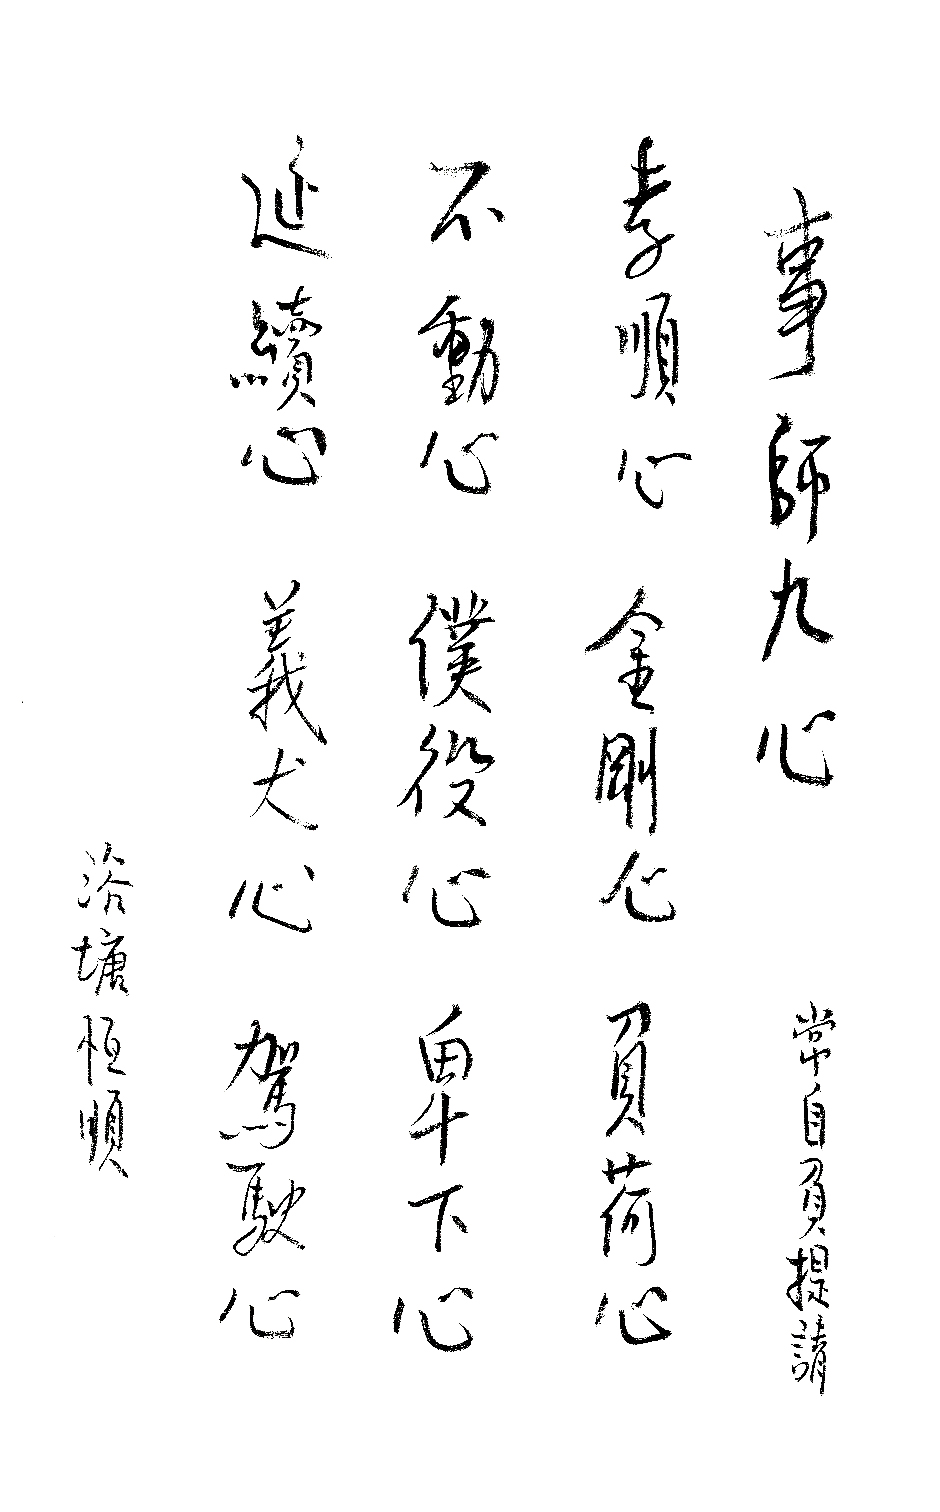 事師九心 常自負提請
孝順心 金剛心 負荷心
不動心 僕役心 卑下心
延續心 義犬心 駕駛心
洛塘恒順